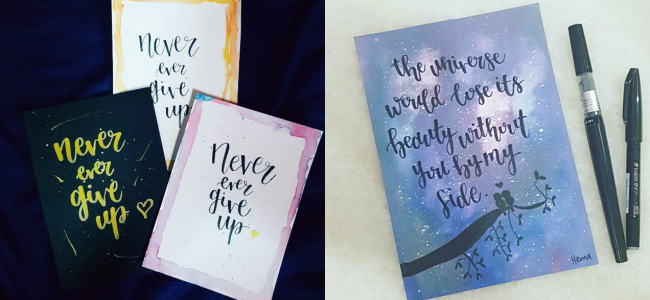 Never
ever
give
up
Never
ever
give
up
Never
ever
give
up
the universe
would lose its
beauty without
you by my
side.
Hema